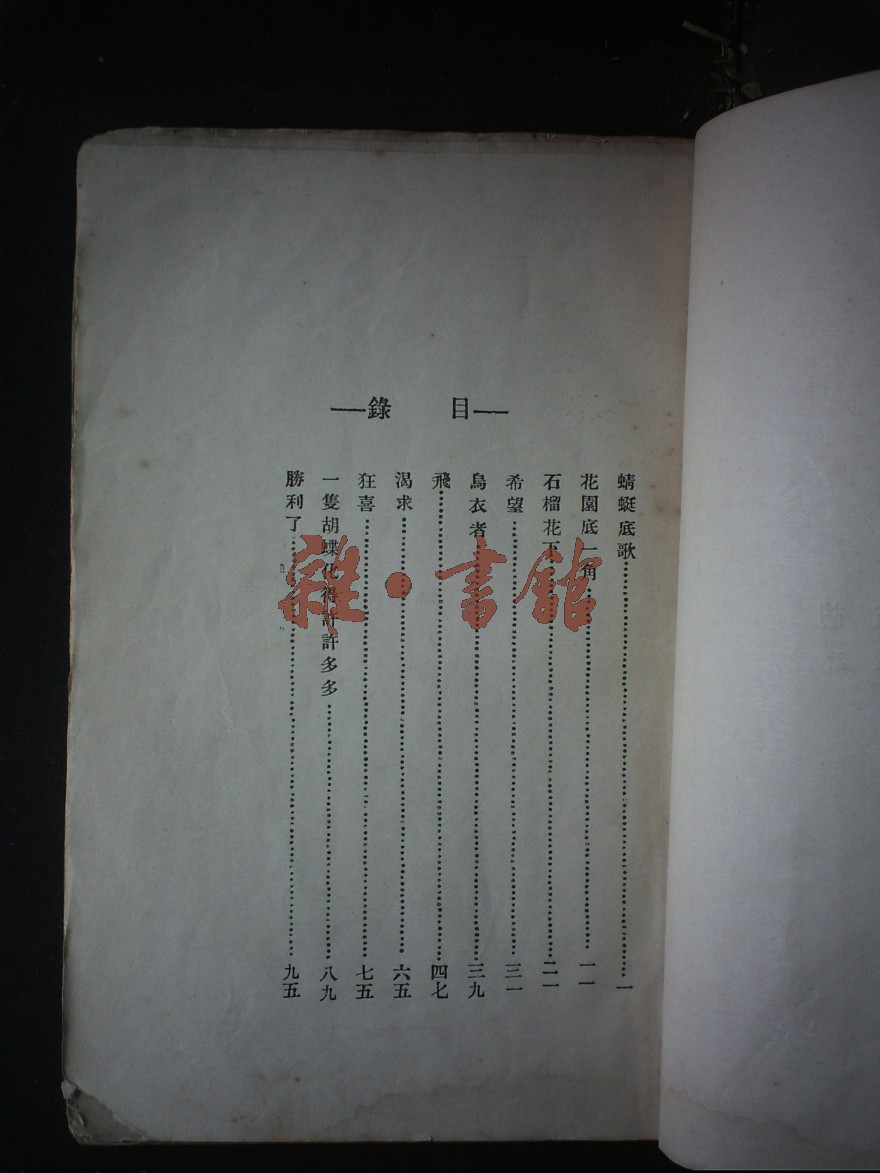 —目 錄—
蜻蜓底歌……一
花園底一角……一一
石榴花下……二一
希望……三一
烏衣者……三九
飛……四七
渴求……六五
狂喜……七五
一隻胡蝶化得許許多多……八九
勝利了……九五
雜·書館